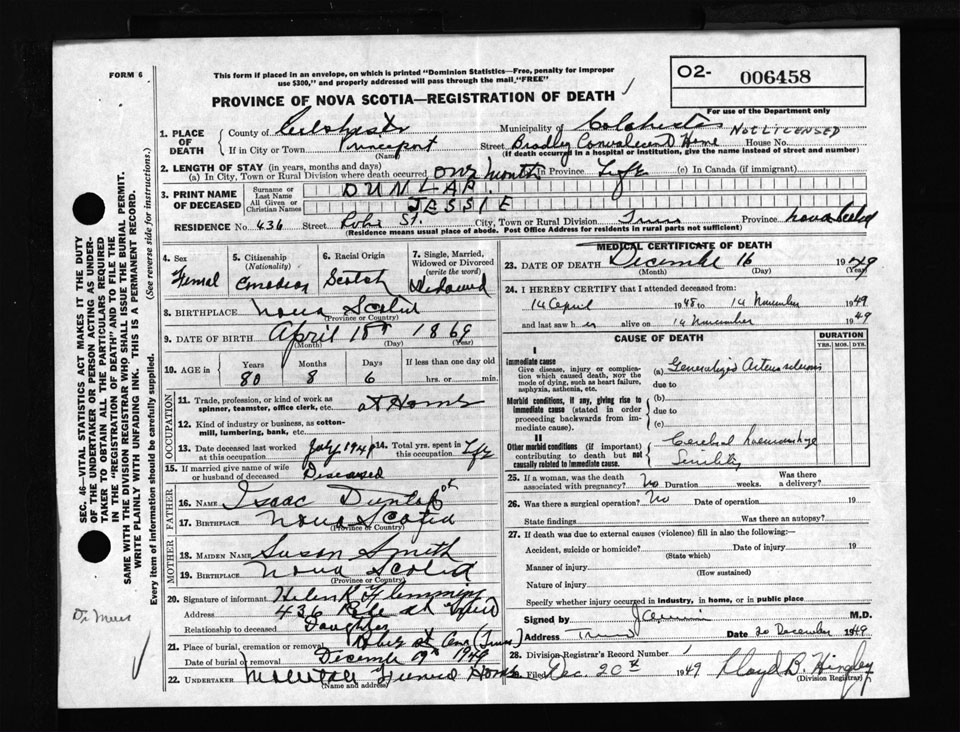 FORM 6
This form if placed in an envelope, on which is printed "Dominion Statistics—Free, penalty for improper
use $300," and properly addressed will pass through the mail "FREE"
O2- 006458
PROVINCE OF NOVA SCOTIA—REGISTRATION OF DEATH
For use of the Department only
1. PLACE OF DEATH
County of Colchester Municipality of Colchester NOT LICENSED
If in City or Town Princeport Street Bradley Convalescent Home House No.
(Name) (If death occurred in a hospital or institution, give the name instead of street and number)
2. LENGTH OF STAY (in years, months and days)
(a) In City, Town or Rural Division where death occurred one month In Province Life (c) In Canada (if immigrant)
3. PRINT NAME OF DECEASED
Surname or Last Name DUNLAP
All Given or Christian Names JESSIE
RESIDENCE No. 436 Street St. City, Town or Rural Division Truro Province Nova Scotia
(Residence means usual place of abode. Post Office Address for residents in rural parts not sufficient)
4. Sex Femal
5. Citizenship (Nationality) Canadian
6. Racial Origin Scotch
7. Single, Married, Widowed or Divorced (write the word) Widowed
8. BIRTHPLACE Nova Scotia
(Province or Country)
9. DATE OF BIRTH April 18th 1869
(Month) (Day) (Year)
10. AGE in Years Months Days If less than one day old
80 8 6 hrs. or min.
OCCUPATION
11. Trade, profession, or kind of work as spinner, teamster, office clerk, etc. at Home
12. Kind of industry or business, as cotton-mill, lumbering, bank, etc.
13. Date deceased last worked at this occupation July 1948 14. Total yrs. spent in this occupation Life
15. If married give name of wife or husband Deceased
FATHER
16. NAME Isaac Dunlap
17. BIRTHPLACE Nova Scotia
(Province or Country)
MOTHER
18. MAIDEN NAME Susan Smith
19. BIRTHPLACE Nova Scotia
(Province or Country)
20. Signature of informant Helen K Flemming
Address 436 St Truro
Relationship to deceased Daughter
21. Place of burial, cremation or removal St Cem (Truro)
Date of burial or removal December 1949
22. UNDERTAKER Funeral Home
(Name and address)
MEDICAL CERTIFICATE OF DEATH
23. DATE OF DEATH December 16 1949
(Month) (Day) (Year)
24. I HEREBY CERTIFY that I attended deceased from:
14 April 1948 to 14 November 1949
and last saw her alive on 14 November 1949
CAUSE OF DEATH
DURATION
YRS. MOS. DYS.
I
Immediate cause
Give disease, injury or complication which caused death, NOT the mode of dying, such as heart failure, asphyxia, asthenia, etc.
(a) Generalized Arteriosclerosis
due to
Morbid conditions, if any, giving rise to immediate cause (stated in order proceeding backwards from immediate cause).
(b)
due to
(c)
II
Other morbid conditions (if important) contributing to death but not causally related to immediate cause.
Cerebral haemorrhage
Senility
25. If a woman, was the death associated with pregnancy? No Duration weeks. Was there a delivery?
26. Was there a surgical operation? No Date of operation 19
State findings Was there an autopsy?
27. If death was due to external causes (violence) fill in also the following:
Accident, suicide or homicide? Date of injury 19
(State which)
Manner of injury
(How sustained)
Nature of injury
Specify whether injury occurred in industry, in home, or in public place
Signed by M.D.
Address Truro Date 20 December 1949
28. Division Registrar's Record Number 1
Filed Dec. 20th 1949 Lloyd B. Hingley
(Division Registrar)
SEC. 46—VITAL STATISTICS ACT MAKES IT THE DUTY
OF THE UNDERTAKER OR PERSON ACTING AS UNDER-
TAKER TO OBTAIN ALL THE PARTICULARS REQUIRED
IN THE "REGISTRATION OF DEATH" AND TO FILE THE
SAME WITH THE DIVISION REGISTRAR WHO SHALL ISSUE THE BURIAL PERMIT.
WRITE PLAINLY WITH UNFADING INK. THIS IS A PERMANENT RECORD.
Every item of information should be carefully supplied. (See reverse side for instructions.)